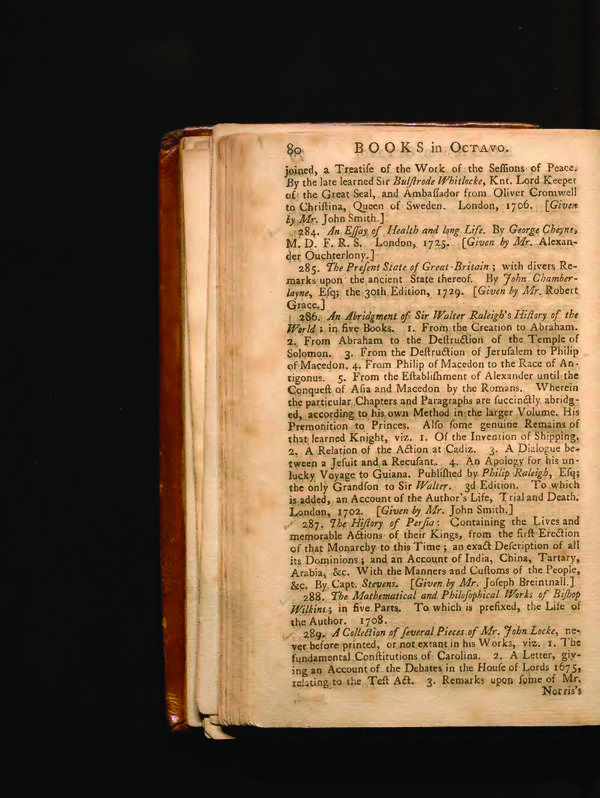 80 BOOKS in OCTAVO.
joined, a Treatiſe of the Work of the Seſſions of Peace.
By the late learned Sir Bulſtrode Whitlocke, Knt. Lord Keeper
of the Great Seal, and Ambaſſador from Oliver Cromwell
to Chriſtina, Queen of Sweden. London, 1706. [Given
by Mr. John Smith.]
284. An Eſſay of Health and long Life. By George Cheyne,
M. D. F. R. S. London, 1725. [Given by Mr. Alexan-
der Ouchterlony.]
285. The Preſent State of Great-Britain; with divers Re-
marks upon the ancient State thereof. By John Chamber-
layne, Eſq; the 30th Edition, 1729. [Given by Mr. Robert
Grace.]
286. An Abridgment of Sir Walter Raleigh's Hiſtory of the
World; in five Books. 1. From the Creation to Abraham.
2. From Abraham to the Deſtruction of the Temple of
Solomon. 3. From the Deſtruction of Jeruſalem to Philip
of Macedon, 4. From Philip of Macedon to the Race of An-
tigonus. 5. From the Eſtabliſhment of Alexander until the
Conqueſt of Aſia and Macedon by the Romans. Wherein
the particular Chapters and Paragraphs are ſuccinctly abridg-
ed, according to his own Method in the larger Volume. His
Premonition to Princes. Alſo ſome genuine Remains of
that learned Knight, viz. 1. Of the Invention of Shipping,
2. A Relation of the Action at Cadiz. 3. A Dialogue be-
tween a Jeſuit and a Recuſant. 4. An Apology for his un-
lucky Voyage to Guiana. Publiſhed by Philip Raleigh, Eſq;
the only Grandſon to Sir Walter. 3d Edition. To which
is added, an Account of the Author's Life, Trial and Death.
London, 1702. [Given by Mr. John Smith.]
287. The Hiſtory of Perſia: Containing the Lives and
memorable Actions of their Kings, from the firſt Erection
of that Monarchy to this Time; an exact Deſcription of all
its Dominions; and an Account of India, China, Tartary,
Arabia, &c. With the Manners and Cuſtoms of the People,
&c. By Capt. Stevens. [Given by Mr. Joſeph Breintnall.]
288. The Mathematical and Philoſophical Works of Biſhop
Wilkins; in five Parts. To which is prefixed, the Life of
the Author. 1708.
289. A Collection of ſeveral Pieces of Mr. John Locke, ne-
ver before printed, or not extant in his Works, viz. 1. The
fundamental Conſtitutions of Carolina. 2. A Letter, giv-
ing an Account of the Debates in the Houſe of Lords 1675,
relating to the Teſt Act. 3. Remarks upon ſome of Mr.
Norris's